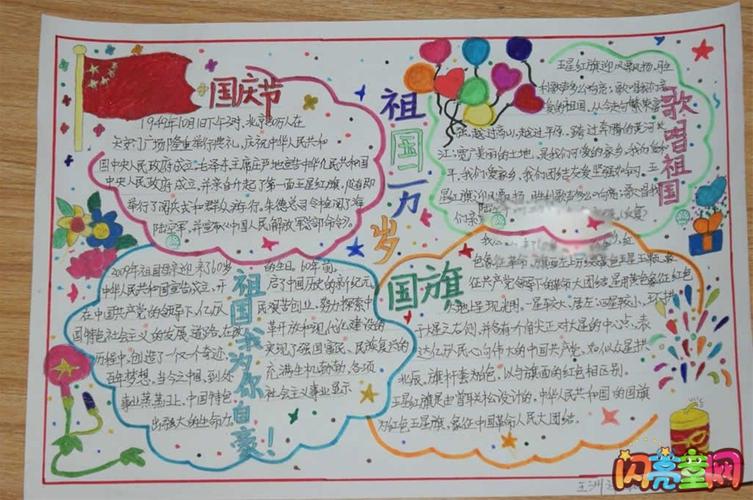 国庆节
1949年10月1日下午3时，北京30万人在
天安门广场隆重举行典礼，庆祝中华人民共和
国中央人民政府成立。毛泽东主席庄严地宣告中华人民共和国
中央人民政府成立，并亲自升起了第一面五星红旗，
举行了阅兵式和群众游行。朱德总司令检阅了海
陆空军，并宣布《中国人民解放军总部命令》。
祖国万岁
歌唱祖国
五星红旗迎风飘扬，胜
利歌声多么响亮；歌唱我们亲
爱的祖国，从今走向繁荣富
强。越过高山，越过平原，跨过奔腾的黄河长
江；宽广美丽的土地，是我们可爱的家乡。我们爱和
平，我们爱家乡，我们团结友爱坚强如钢。五
星红旗迎风飘扬，胜利歌声多么响亮；歌唱我
们亲
祖国我为你自豪！
2009年祖国母亲迎来了60岁的生日。60年前，
中华人民共和国宣告成立，开启了中国历史的新纪元。
在中国共产党的领导下，亿万
国特色社会主义的发展道路，在
历程中，创造了一个又一个奇迹，实现了强国富民、民族复兴的
百年梦想。当今之中国，到处充满生机勃勃，各项
事业蒸蒸日上，中国特色社会主义事业显示
出强大的生命力。
国旗
在共产党的领导下人民大团结，星用黄色象征红色
大地上呈现光明，一星较大，居左；四星较小，环拱
于大星之右侧，并各有一角尖正对大星的中心点，表
达亿万人民心向伟大的中国共产党，如似众星拱
北辰。旗杆套为白色，以与旗面的红色相区别。
五星红旗是由曾联松设计的，中华人民共和国的国旗
为红色五星旗，象征中国革命人民大团结。
闪亮童网